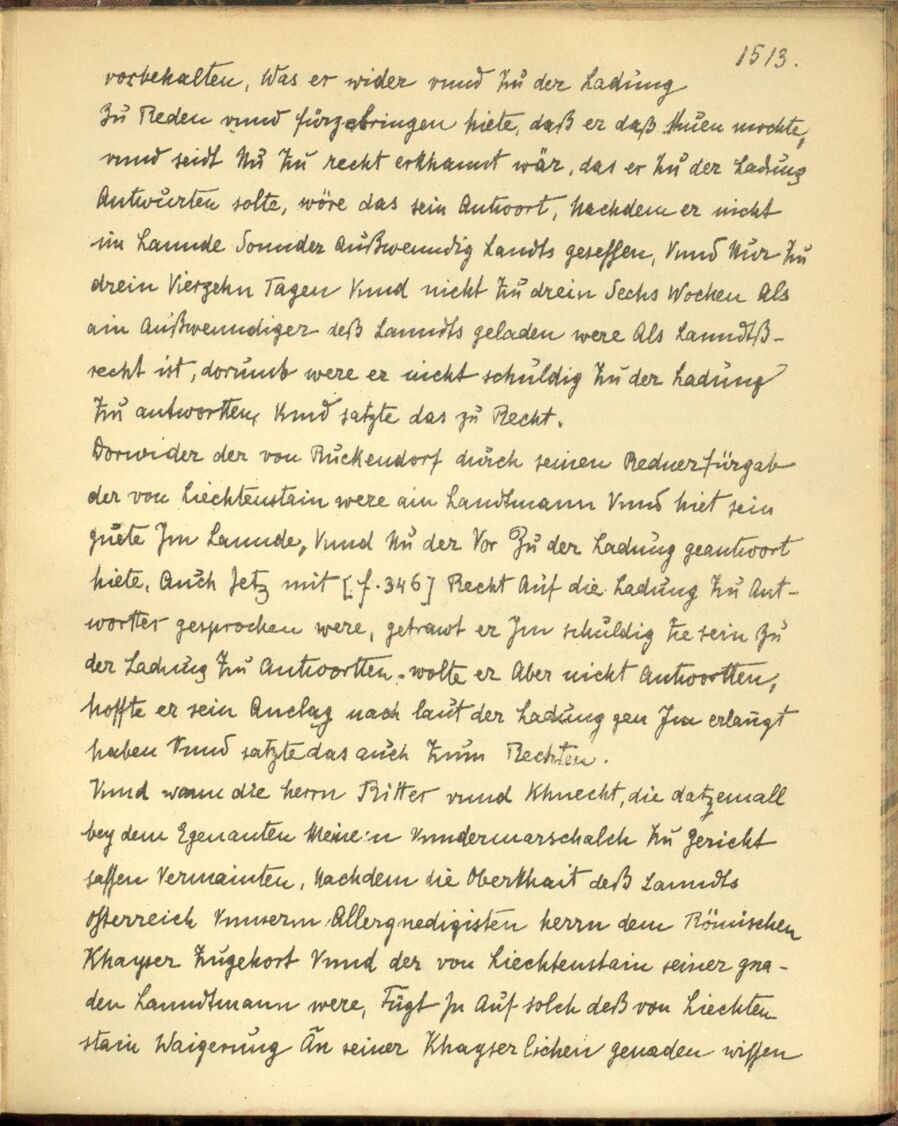 1513.
vorbehalten, Was er wider vnnd Zu der Ladung
Zu Reden vnnd fürgebringen hiete, daß er daß thuen mochte,
vnnd seidt Nu Zu recht erkhannt wär, das er Zu der Ladung
Antwurten solte, wöre das sein Antwort, Nachdem er nicht
im Lannde Sonnder Außwenndig Landts gesessen, Vnnd Nur Zu
drein Vierzehn Tagen Vnnd nicht Zu drein Sechs Wochen Als
ain Außwenndiger deß Lanndts geladen were Als Lanndtß-
recht ist, dorumb were er nicht schuldig Zu der Ladung
Zu antwortten, Vnnd satzte das zu Recht.
Dorwider der von Ruckendorf durch seinen Redner fürgab
der von Liechtenstain were ain Landtmann Vnnd hiet sein
guete Im Lannde, Vnnd Nu der Vor Zu der Ladung geantwort
hiete, Auch Jetz mit [f. 346] Recht Auf die Ladung Zu Ant-
wortter gesprochen were, getrawt er Im schuldig ze sein Zu
der Ladung Zu Antwortten. wolte er Aber nicht Antwortten,
hoffte er sein Anclag nach laut der Ladung gen Im erlangt
haben Vnnd satzte das auch Zum Rechten.
Vnnd wann die herrn Ritter vnnd Khnecht, die datzemall
bey dem Egenanten Meinen Vnndermarschalch Zu Gericht
sassen Vermainten, Nachdem die Oberkhait deß Lanndts
Osterreich Vnnserm Allergnedigisten herrn dem Römischen
Khayser Zugehort Vnnd der von Liechtenstain seiner gna-
den Lanndtmann were, Fügt Jn Auf solch deß von Liechten
stain Waigerung An seiner Khayserlichen genaden wissen